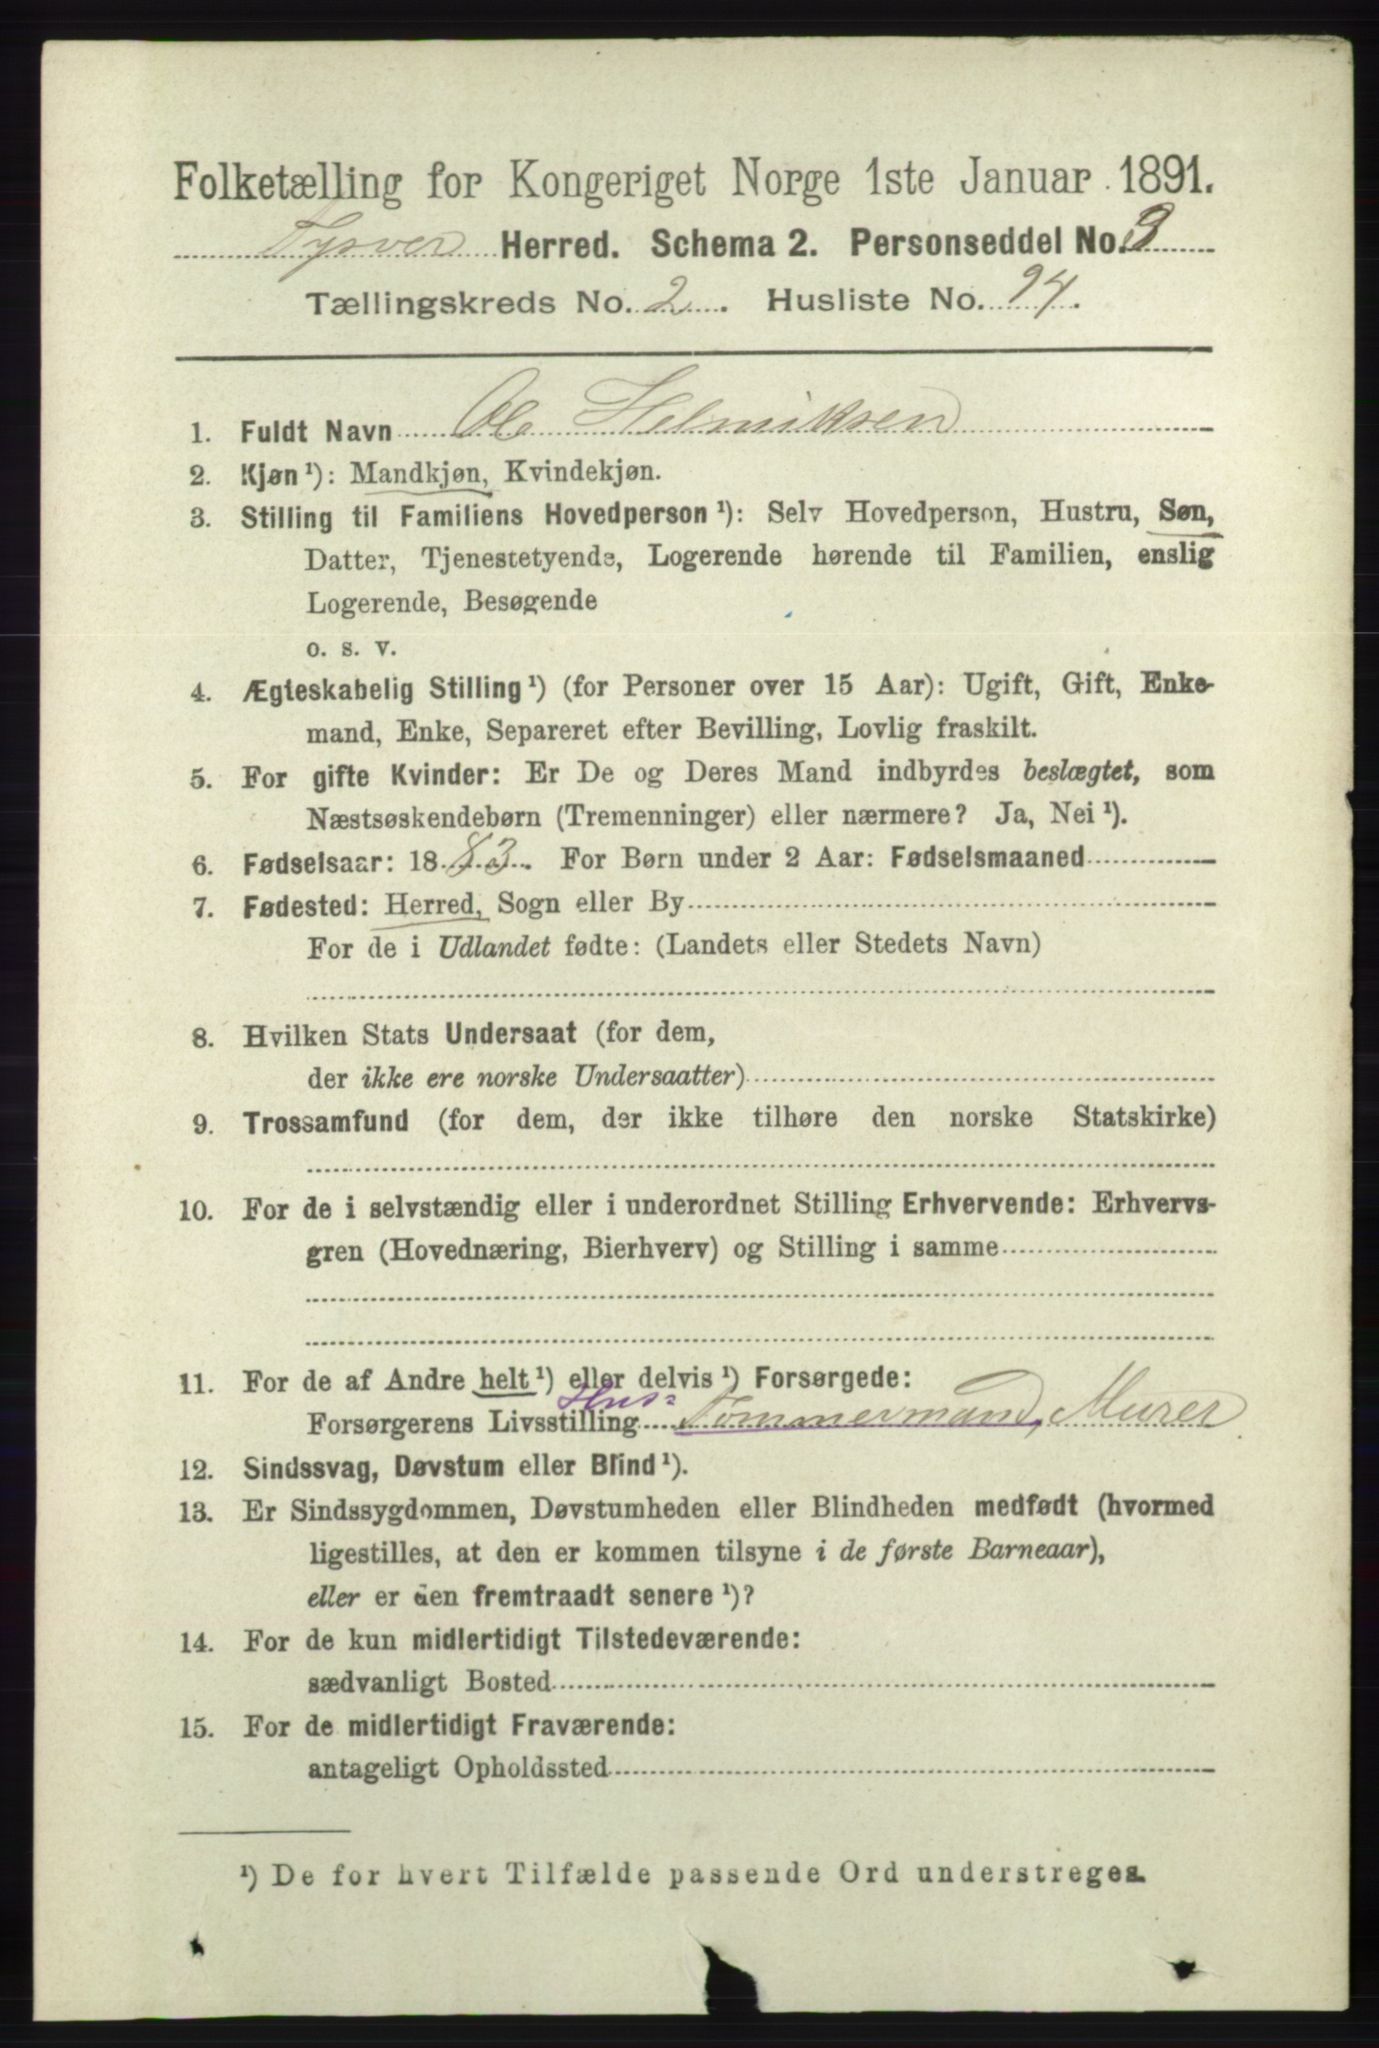 Folketælling for Kongeriget Norge 1ste Januar 1891.
Tysvær Herred. Schema 2. Personseddel No. 3
Tællingskreds No. 2. Husliste No. 94.
1. Fuldt Navn Ole Helmiksen
2. Kjøn ¹): Mandkjøn, Kvindekjøn.
3. Stilling til Familiens Hovedperson ¹): Selv Hovedperson, Hustru, Søn,
Datter, Tjenestetyende, Logerende hørende til Familien, enslig
Logerende, Besøgende
o. s. v.
4. Ægteskabelig Stilling ¹) (for Personer over 15 Aar): Ugift, Gift, Enke-
mand, Enke, Separeret efter Bevilling, Lovlig fraskilt.
5. For gifte Kvinder: Er De og Deres Mand indbyrdes beslægtet, som
Næstsøskendebørn (Tremenninger) eller nærmere? Ja, Nei ¹).
6. Fødselsaar: 1883. For Børn under 2 Aar: Fødselsmaaned
7. Fødested: Herred, Sogn eller By
For de i Udlandet fødte: (Landets eller Stedets Navn)
8. Hvilken Stats Undersaat (for dem,
der ikke ere norske Undersaatter)
9. Trossamfund (for dem, der ikke tilhøre den norske Statskirke)
10. For de i selvstændig eller i underordnet Stilling Erhvervende: Erhvervs-
gren (Hovednæring, Bierhverv) og Stilling i samme
11. For de af Andre helt ¹) eller delvis ¹) Forsørgede:
Forsørgerens Livsstilling Hus- Tømmermand, Murer
12. Sindssvag, Døvstum eller Blind ¹).
13. Er Sindssygdommen, Døvstumheden eller Blindheden medfødt (hvormed
ligestilles, at den er kommen tilsyne i de første Barneaar),
eller er den fremtraadt senere ¹)?
14. For de kun midlertidigt Tilstedeværende:
sædvanligt Bosted
15. For de midlertidigt Fraværende:
antageligt Opholdssted
¹) De for hvert Tilfælde passende Ord understreges.